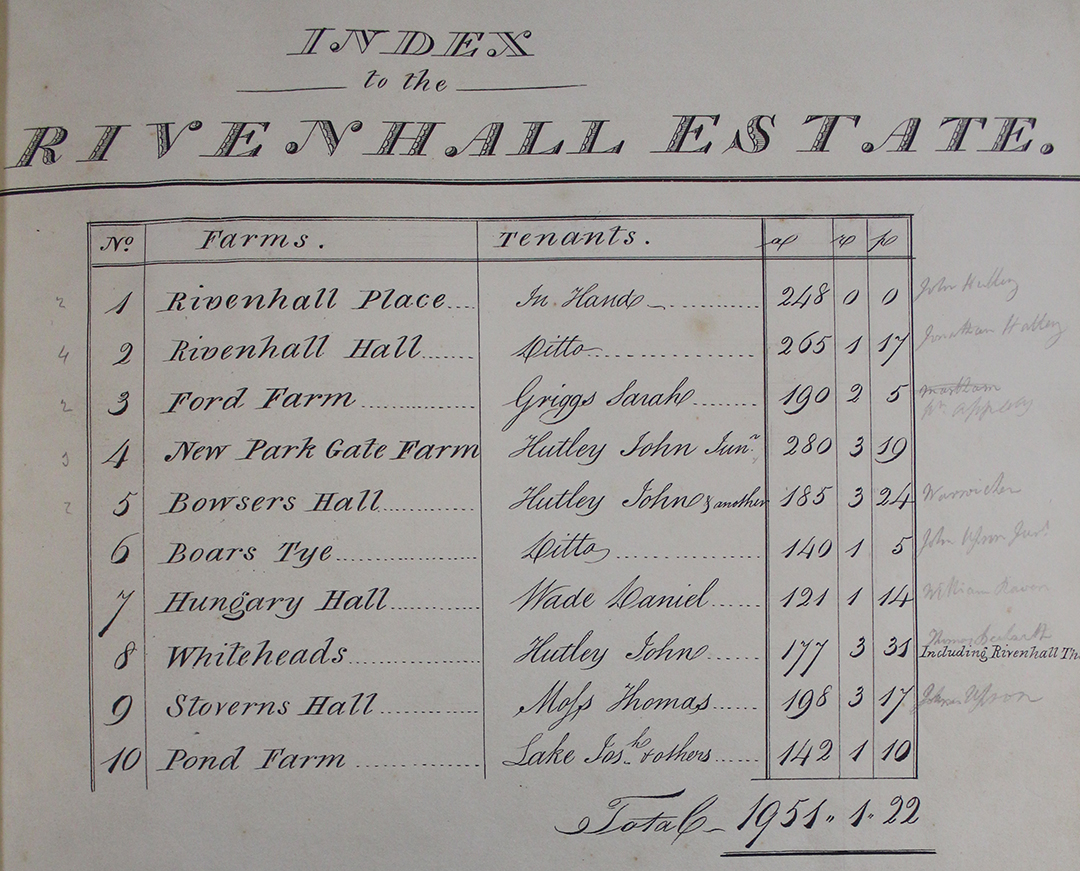 INDEX
to the
RIVENHALL ESTATE.
No. Farms. Tenants. a r p
2 1 Rivenhall Place In Hand 248 0 0 John Hutley
4 2 Rivenhall Hall Ditto 265 1 17 Jonathan Hutley
2 3 Ford Farm Griggs Sarah 190 2 5
3 4 New Park Gate Farm Hutley John Junr. 280 3 19
2 5 Bowsers Hall Hutley John & another 185 3 24
6 Boars Tye Ditto 140 1 5 John
7 Hungary Hall Wade Daniel 121 1 14 William Raven
8 Whiteheads Hutley John 177 3 31 Thomas
Including Rivenhall Th
9 Stoverns Hall Moss Thomas 198 3 17
10 Pond Farm Lake Josh. & others 142 1 10
Total 1951" 1" 22